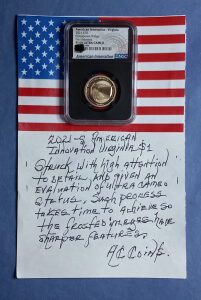 American Innovation - Virginia
2021 S $1
ULTRA CAMEO
American Innovation
2021-S AMERICAN
INNOVATION VIRGINIA $1
STRUCK WITH HIGH ATTENTION
TO DETAIL AND GIVEN AN
EVALUATION OF ULTRA CAMEO
STATUS. SUCH PROCESS
TAKES TIME TO ACHIEVE SO
THE FROSTED IMAGES HAVE
SHARPER FEATURES.
AC Coins.